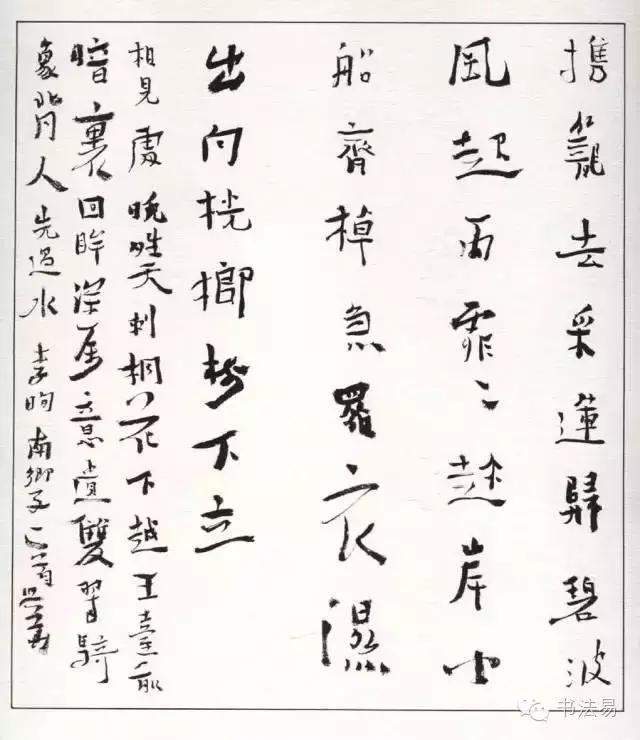 携籠去采蓮歸碧波
風起雨霏〻趁岸小
船齊棹急羅衣濕
出向桄榔樹下立
相見處晚晴天刺桐花下越王臺前
暗裏回眸深屬意遺雙翠騎
象背人先過水 李珣南鄉子二首
书法易